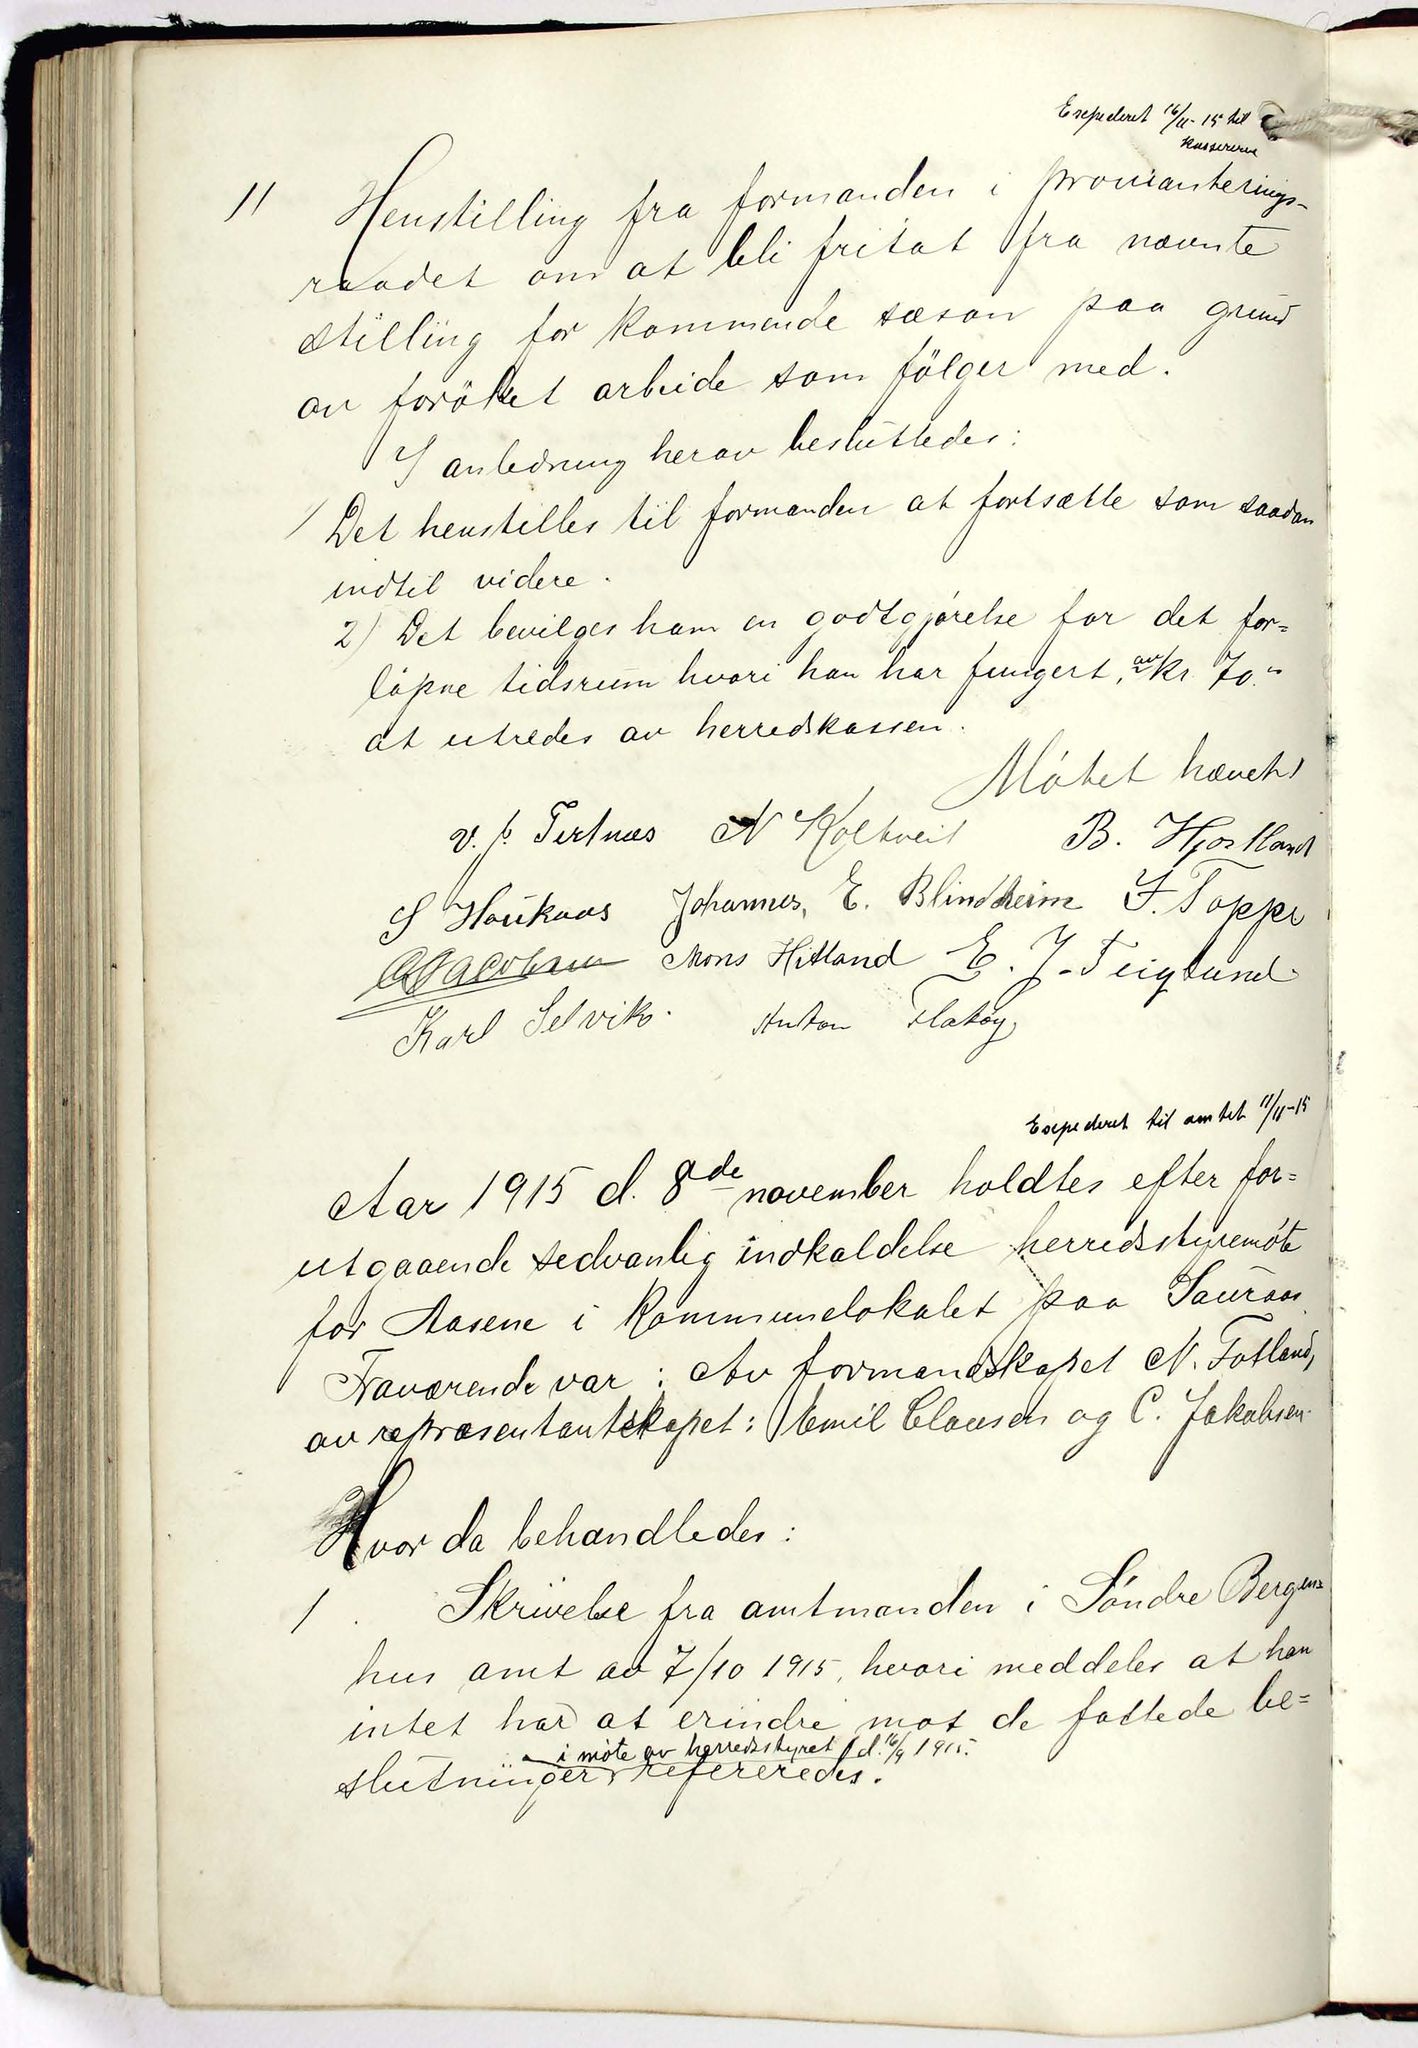 Expederet 16/11-15 til
kassereren
11 Henstilling fra formanden i provianterings-
raadet om at bli fritat fra nævnte
stilling for kommende sæson paa grund
av forøket arbeide som følger med.
I anledning herav besluttedes:
1 Det henstilles til formanden at fortsætte som saadan
indtil videre.
2) Det bevilges ham en godtgjørelse for det for=
løpne tidsrum hvori han har fungert, av kr. 70.-
at utredes av herredskassen.
Møtet hævet!
V. J. Tertnæs N Koltveit B. Hjortland
S Haukaas Johannes, E. Blindheim F. Toppe
C Jacobsen Mons Hitland E. J. Teiglund
Karl Selvik. Anton Flatøy
Expederet til amtet 11/11-15
Aar 1915 d. 8de november holdtes efter for=
utgaaende sedvanlig indkaldelse herredsstyremøte
for Aasene i Kommunelokalet paa Sauraas
Fraværende var: Av formandskapet N. Totland,
av repræsentantskapet: Emil Clausen og C. Jakobsen.
Hvor da behandledes:
1. Skrivelse fra amtmanden i Søndre Bergen=
hus amt av 7/10 1915, hvori meddeles at han
intet har at erindre mot de fattede be=
i møte av herredsstyret d. 16/9 1915.
slutninger refereredes.